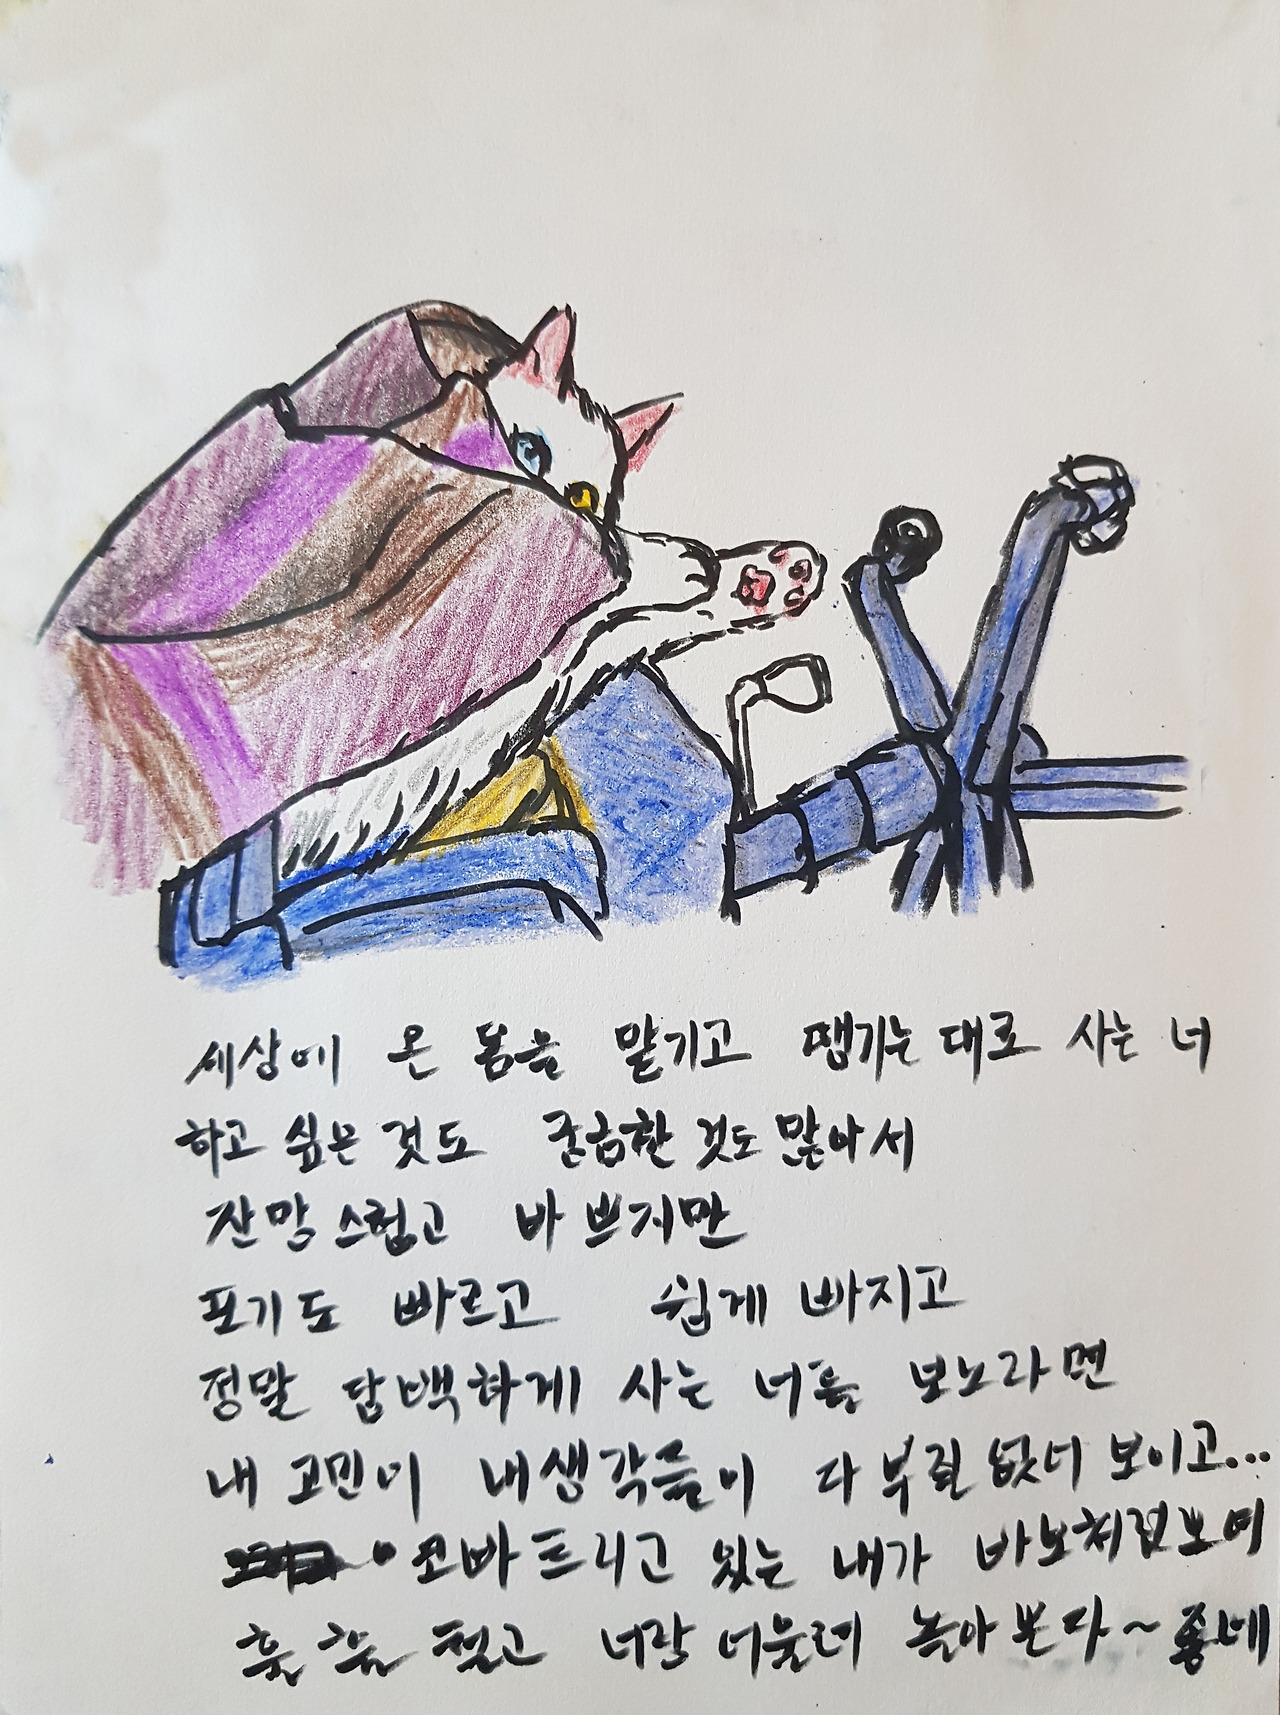 세상에 온 몸을 맡기고 땡기는 대로 사는 너
하고 싶은 것도 궁금한 것도 많아서
잔망스럽고 바쁘지만
포기도 빠르고 쉽게 빠지고
정말 담백하게 사는 너를 보노라면
내 고민이 내 생각들이 다 부질없어 보이고...
코 빠트리고 있는 내가 바보처럼 보여
훌훌 털고 너랑 어울려 놀아본다~ 좋네